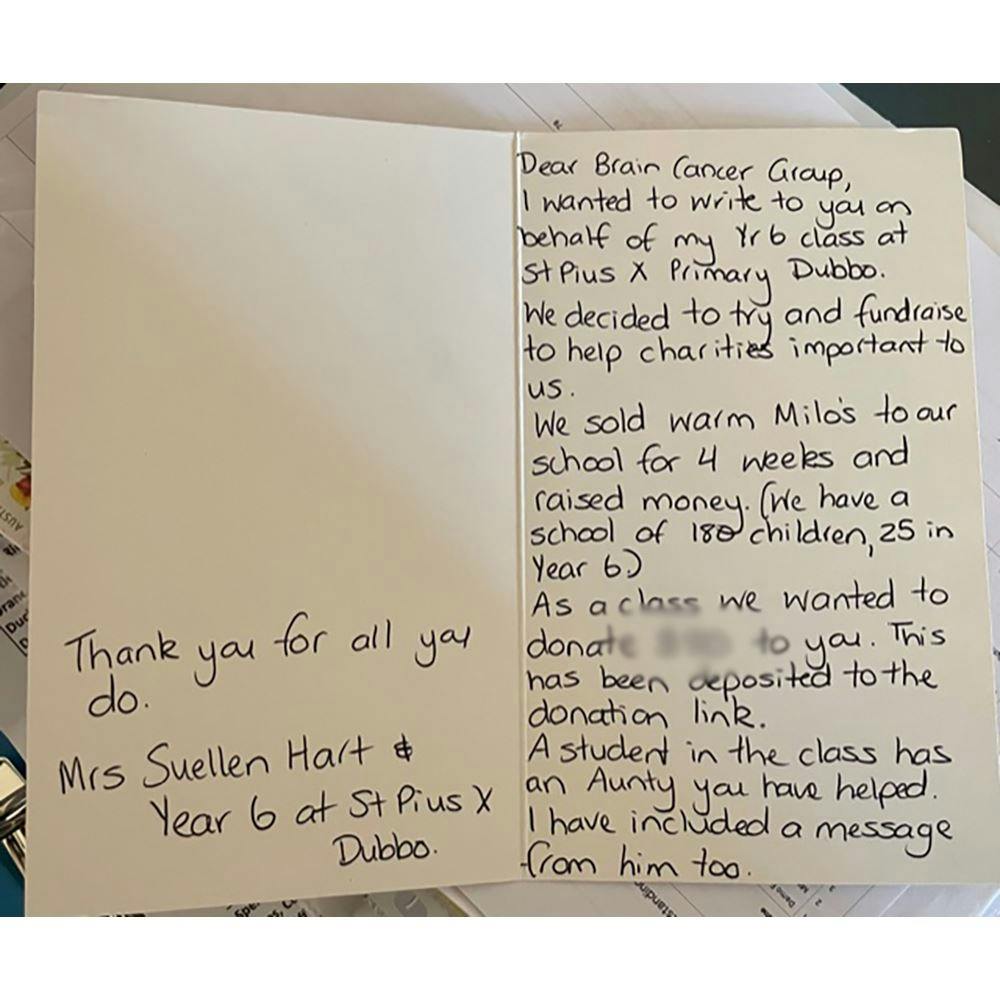 Dear Brain Cancer Group,
I wanted to write to you on
behalf of my Yr 6 class at
St Pius X Primary Dubbo.
We decided to try and fundraise
to help charities important to
us.
We sold warm Milo's to our
school for 4 weeks and
raised money. (We have a
school of 180 children, 25 in
Year 6)
As a class we wanted to
donate to you. This
has been deposited to the
donation link.
A student in the class has
an Aunty you have helped.
I have included a message
from him too.
Thank you for all you
do.
Mrs Suellen Hart &
Year 6 at St Pius X
Dubbo.